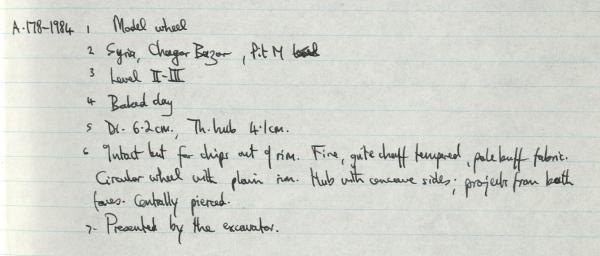 A.178-1984 1 Model wheel
2 Syria, Chagar Bazar, Pit M
3 Level II-III
4 Baked clay
5 Di. 6.2cm., Th. hub 4.1cm.
6 Intact but for chips out of rim. Fine, quite chaff tempered, pale buff fabric.
Circular wheel with plain rim. Hub with concave sides; projects from both
faces. Centrally pierced.
7. Presented by the excavator.